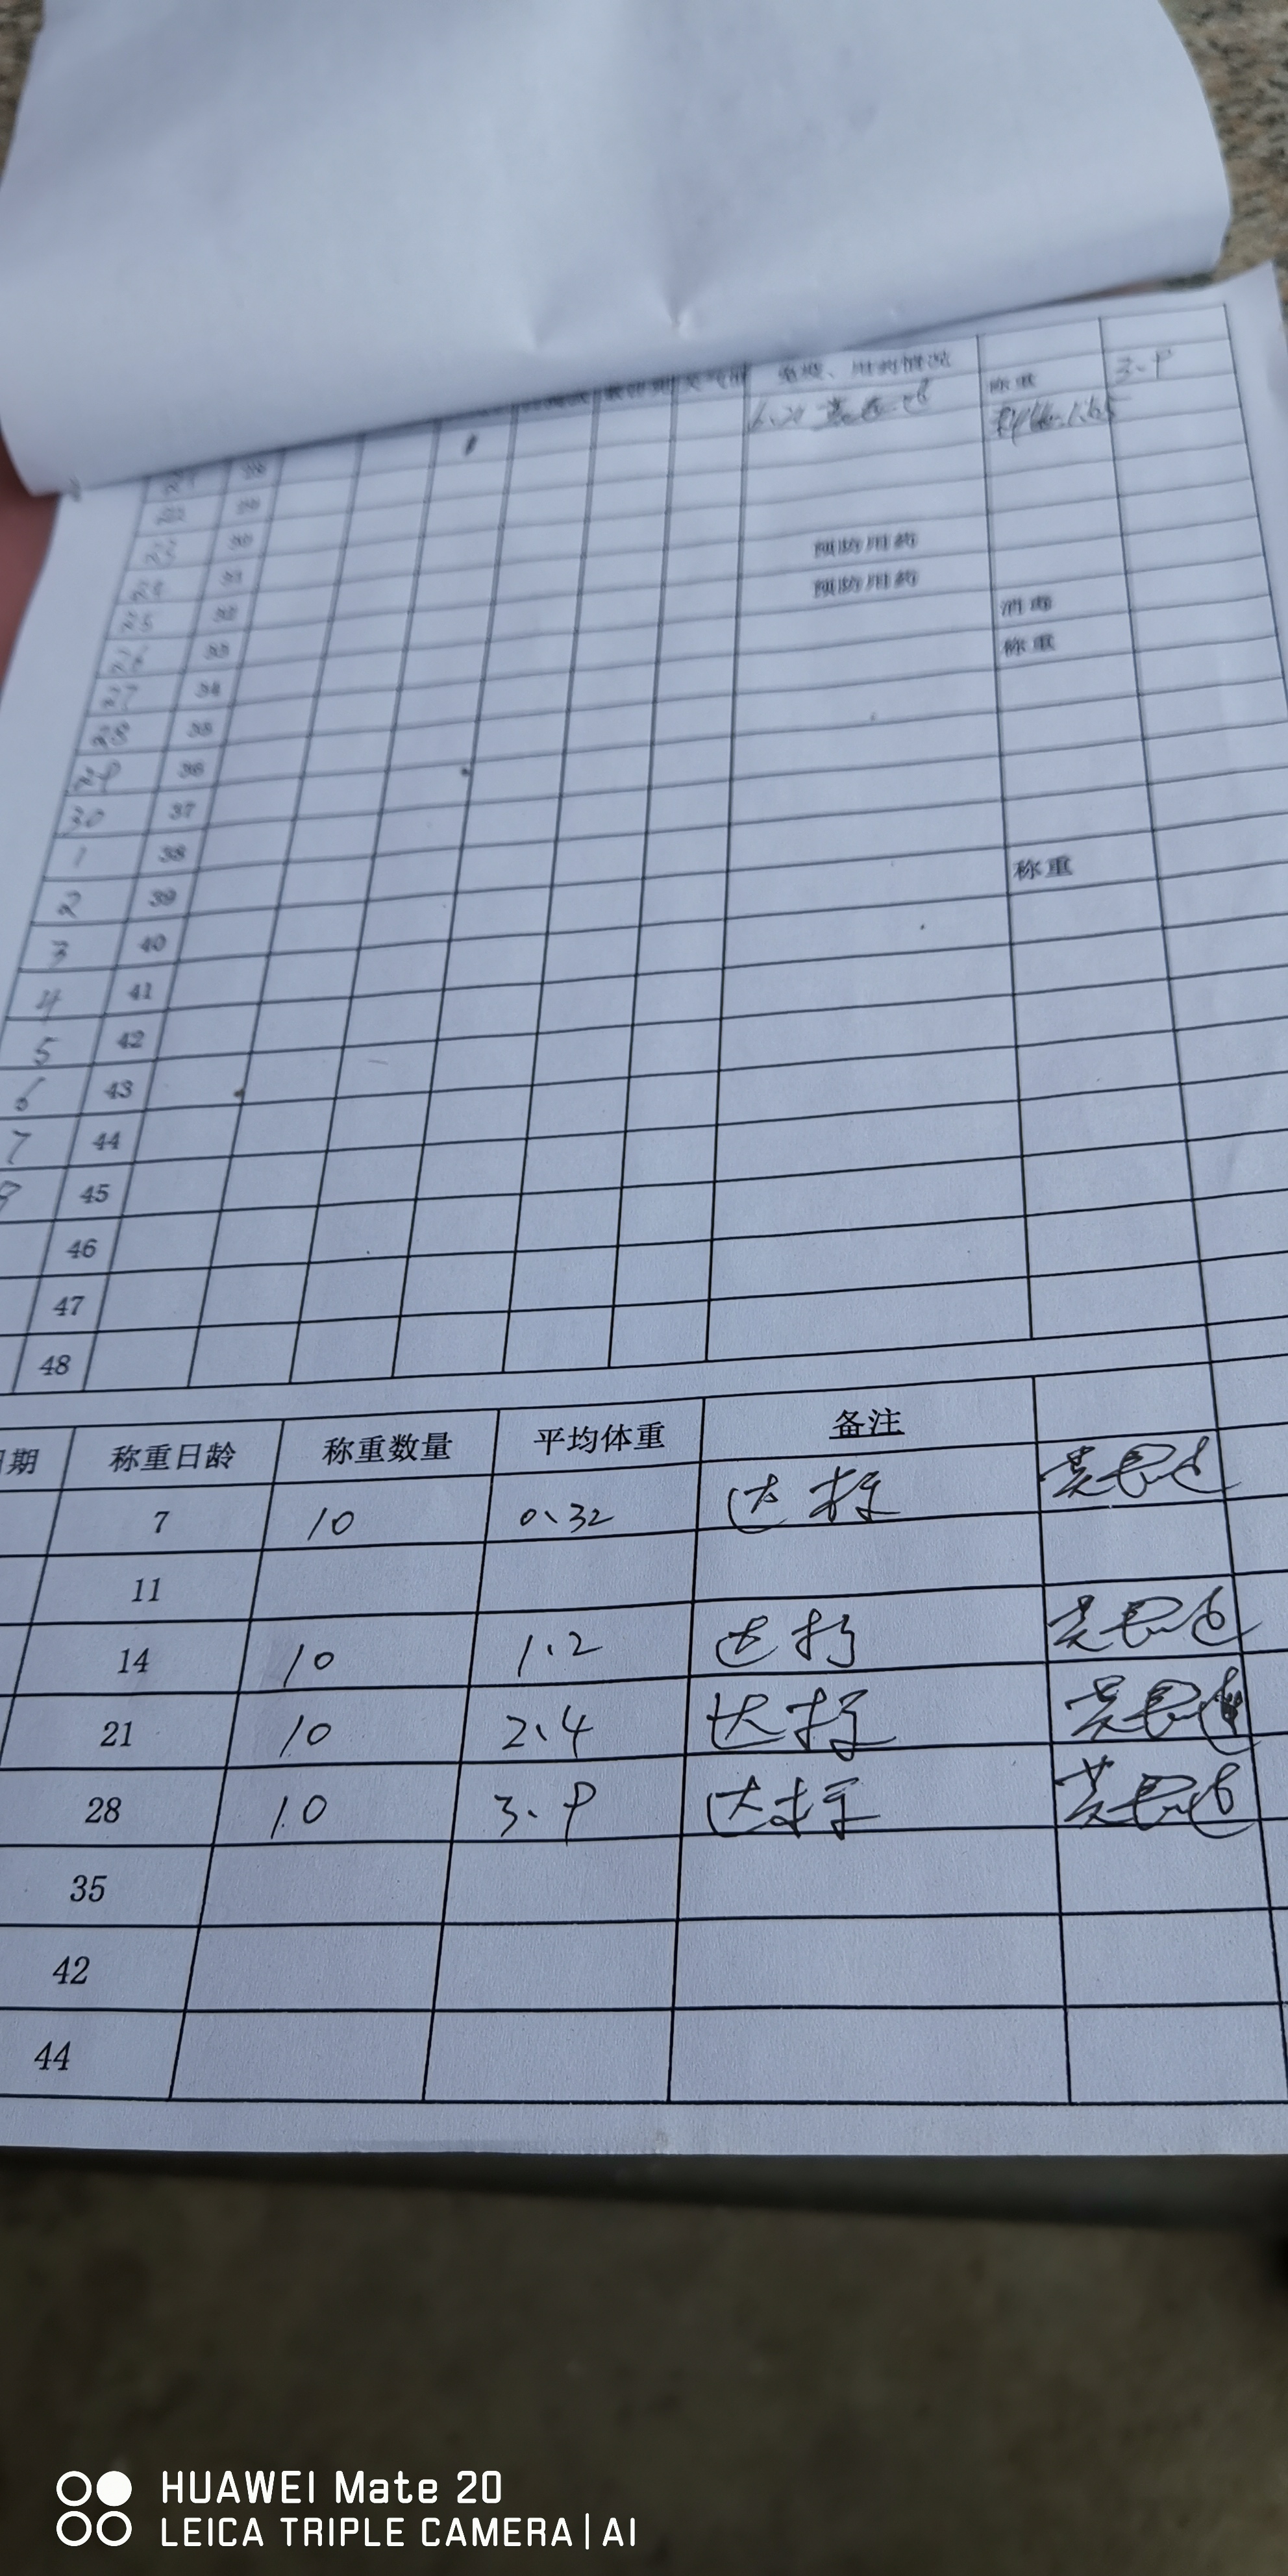 免疫、用药情况
称重 3.9
28
22 29
23 30 预防用药
24 31 预防用药
25 32 消毒
26 33 称重
27 34
28 35
29 36
30 37
1 38
2 39 称重
3 40
4 41
5 42
6 43
7 44
45
46
47
48
期 称重日龄 称重数量 平均体重 备注
7 10 0.32 达标
11
14 10 1.2 达标
21 10 2.4 达标
28 10 3.9 达标
35
42
44
HUAWEI Mate 20
LEICA TRIPLE CAMERA | AI